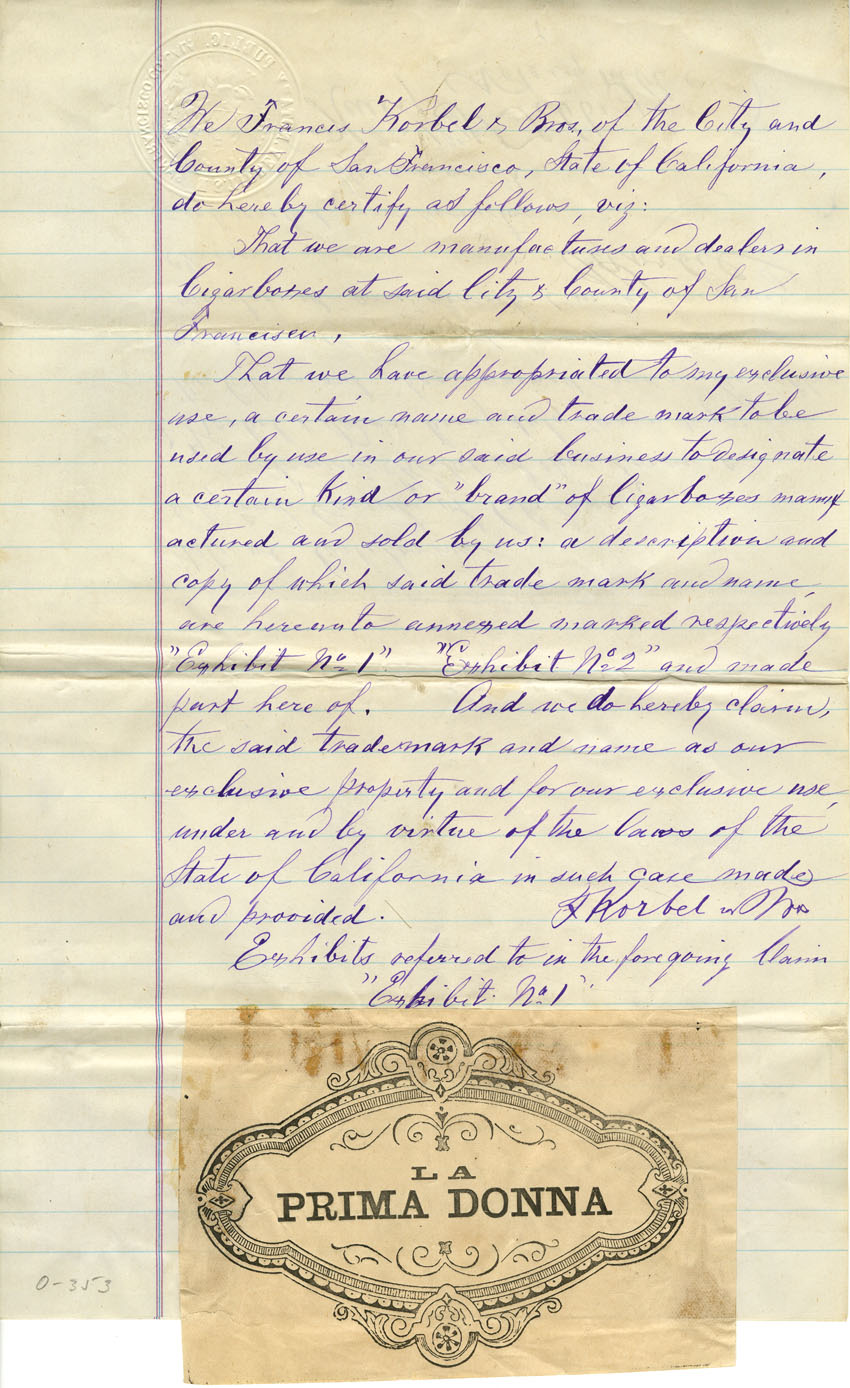 We Francis Korbel & Bros, of the City and
County of San Francisco, State of California,
do hereby certify as follows, viz:
That we are manufactures and dealers in
Cigarboxes at said City & County of San
Francisco,
That we have appropriated to my exclusive
use, a certain name and trade mark to be
used by use in our said business to designate
a certain kind or "brand" of Cigarboxes manuf
actured and sold by us: a description and
copy of which said trade mark and name,
are hereunto annexed marked respectively
"Exhibit No 1" "Exhibit No 2" and made
part here of. And we do hereby claim,
the said trademark and name as our
exclusive property and for our exclusive use,
under and by virtue of the laws of the
State of California in such case made
and provided. F Korbel & Bros
Exhibits referred to in the foregoing Claim
"Exhibit No 1"
LA
PRIMA DONNA
0-353